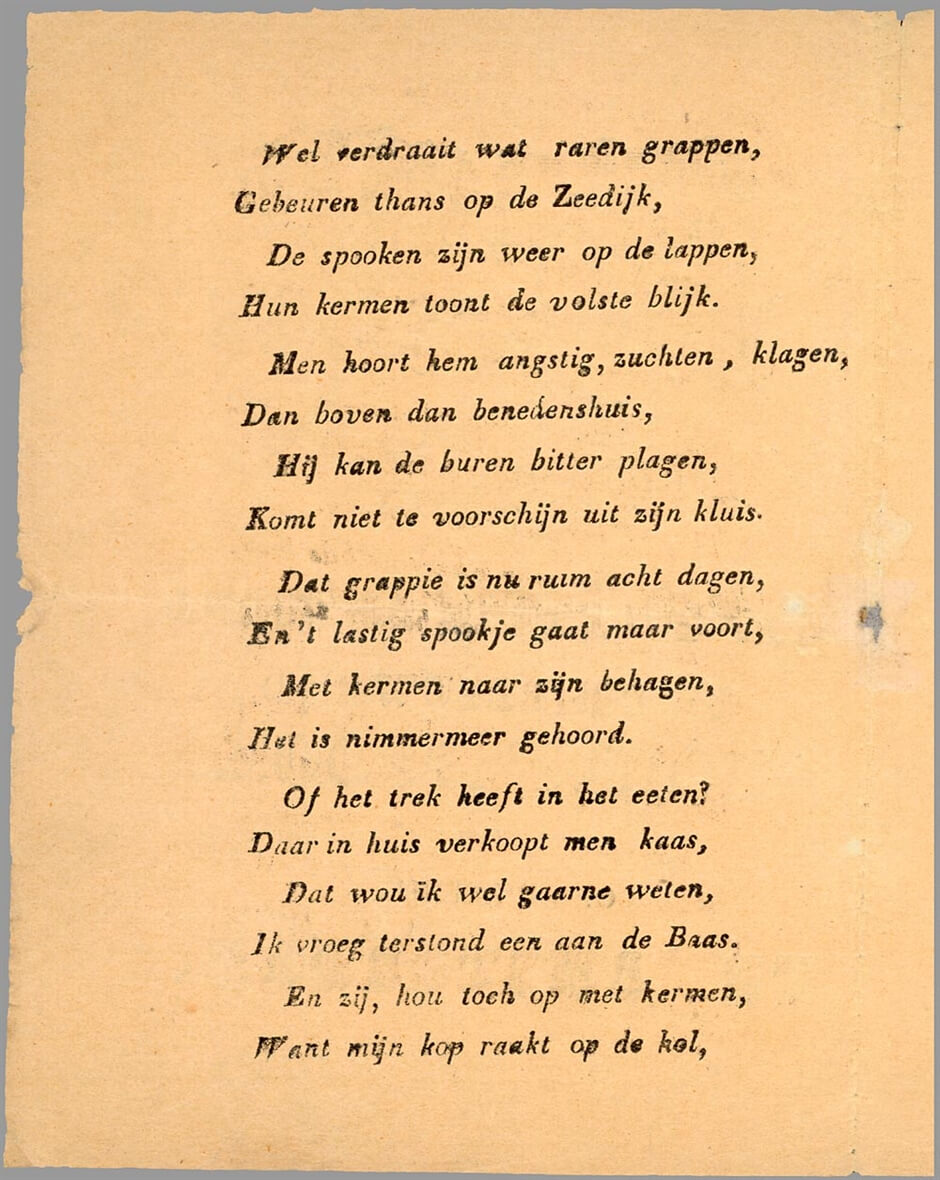 Wel verdraait wat raren grappen,
Gebeuren thans op de Zeedijk,
De spooken zijn weer op de lappen,
Hun kermen toont de volste blijk.
Men hoort hem angstig, zuchten, klagen,
Dan boven dan benedenshuis,
Hij kan de buren bitter plagen,
Komt niet te voorschijn uit zijn kluis.
Dat grappie is nu ruim acht dagen,
En't lastig spookje gaat maar voort,
Met kermen naar zijn behagen,
Het is nimmermeer gehoord.
Of het trek heeft in het eeten?
Daar in huis verkoopt men kaas,
Dat wou ik wel gaarne weten,
Ik vroeg terstond een aan de Baas.
En zij, hou toch op met kermen,
Want mijn kop raakt op de hol,